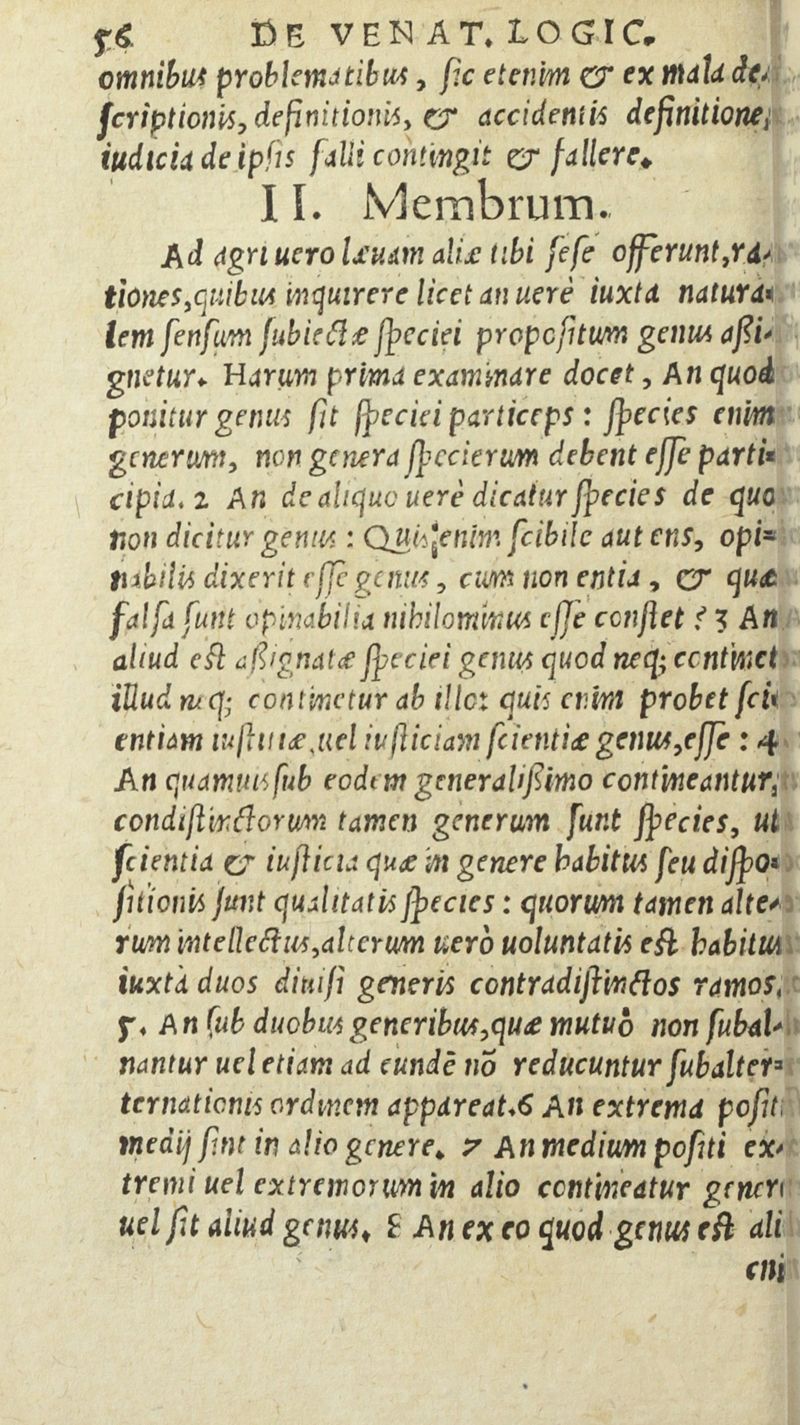 56 DE VENAT. LOGIC.
omnibus problematibus, sic etenim & ex mala de-
scriptionis, definitionis, & accidentis definitione,
iudicia de ipsis falli contingit & fallere.
II. Membrum.
Ad agri uero læuam aliæ tibi sese offerunt, ra-
tiones, quibus inquirere licet an uere iuxta natura-
lem sensum subiectæ speciei propositum genus assi-
gnetur. Harum prima examinare docet, An quod
ponitur genus sit speciei particeps: species enim
generum, non genera specierum debent esse parti-
cipia. 2 An de aliquo uerè dicatur species de quo
non dicitur genus: Quis enim scibile aut ens, opi-
nabilis dixerit esse genus, cum non entia, & quæ
falsa sunt opinabilia nihilominus esse constet? 3 An
aliud est assignatæ speciei genus quod neq; continet
illud neq; continetur ab illo: quis enim probet sci-
entiam iustitiæ, uel iusticiam scientiæ genus, esse: 4
An quamuis sub eodem generalissimo contineantur,
condistinctorum tamen generum sunt species, ut
scientia & iusticia quæ in genere habitus seu dispo-
sitionis sunt qualitatis species: quorum tamen alte-
rum intellectus, alterum uerò uoluntatis est habitus
iuxtà duos diuisi generis contradistinctos ramos.
5. An sub duobus generibus, quæ mutuò non subal-
nantur uel etiam ad eundē nō reducuntur subalter-
ternationis ordinem appareat. 6 An extrema posit
medij sint in alio genere. 7 An medium positi ex-
tremi uel extremorum in alio contineatur generi
uel sit aliud genus. 8 An ex eo quod genus est ali
cui